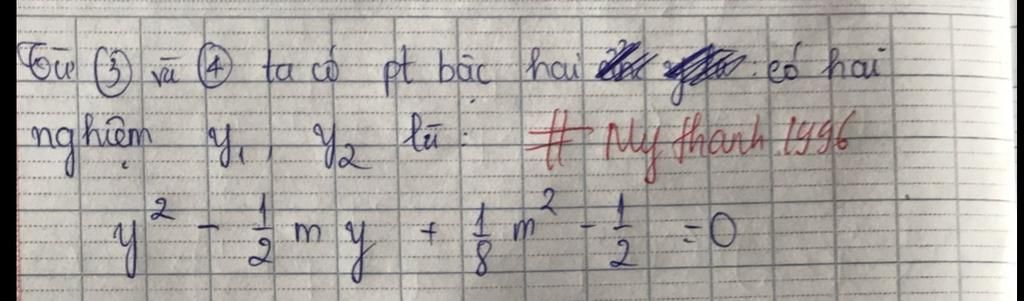 Từ ③ và ④ ta có pt bậc hai có hai
nghiệm y₁, y₂ là: # Mythanh1996
y² - 1/2 m y + 1/8 m² - 1/2 = 0